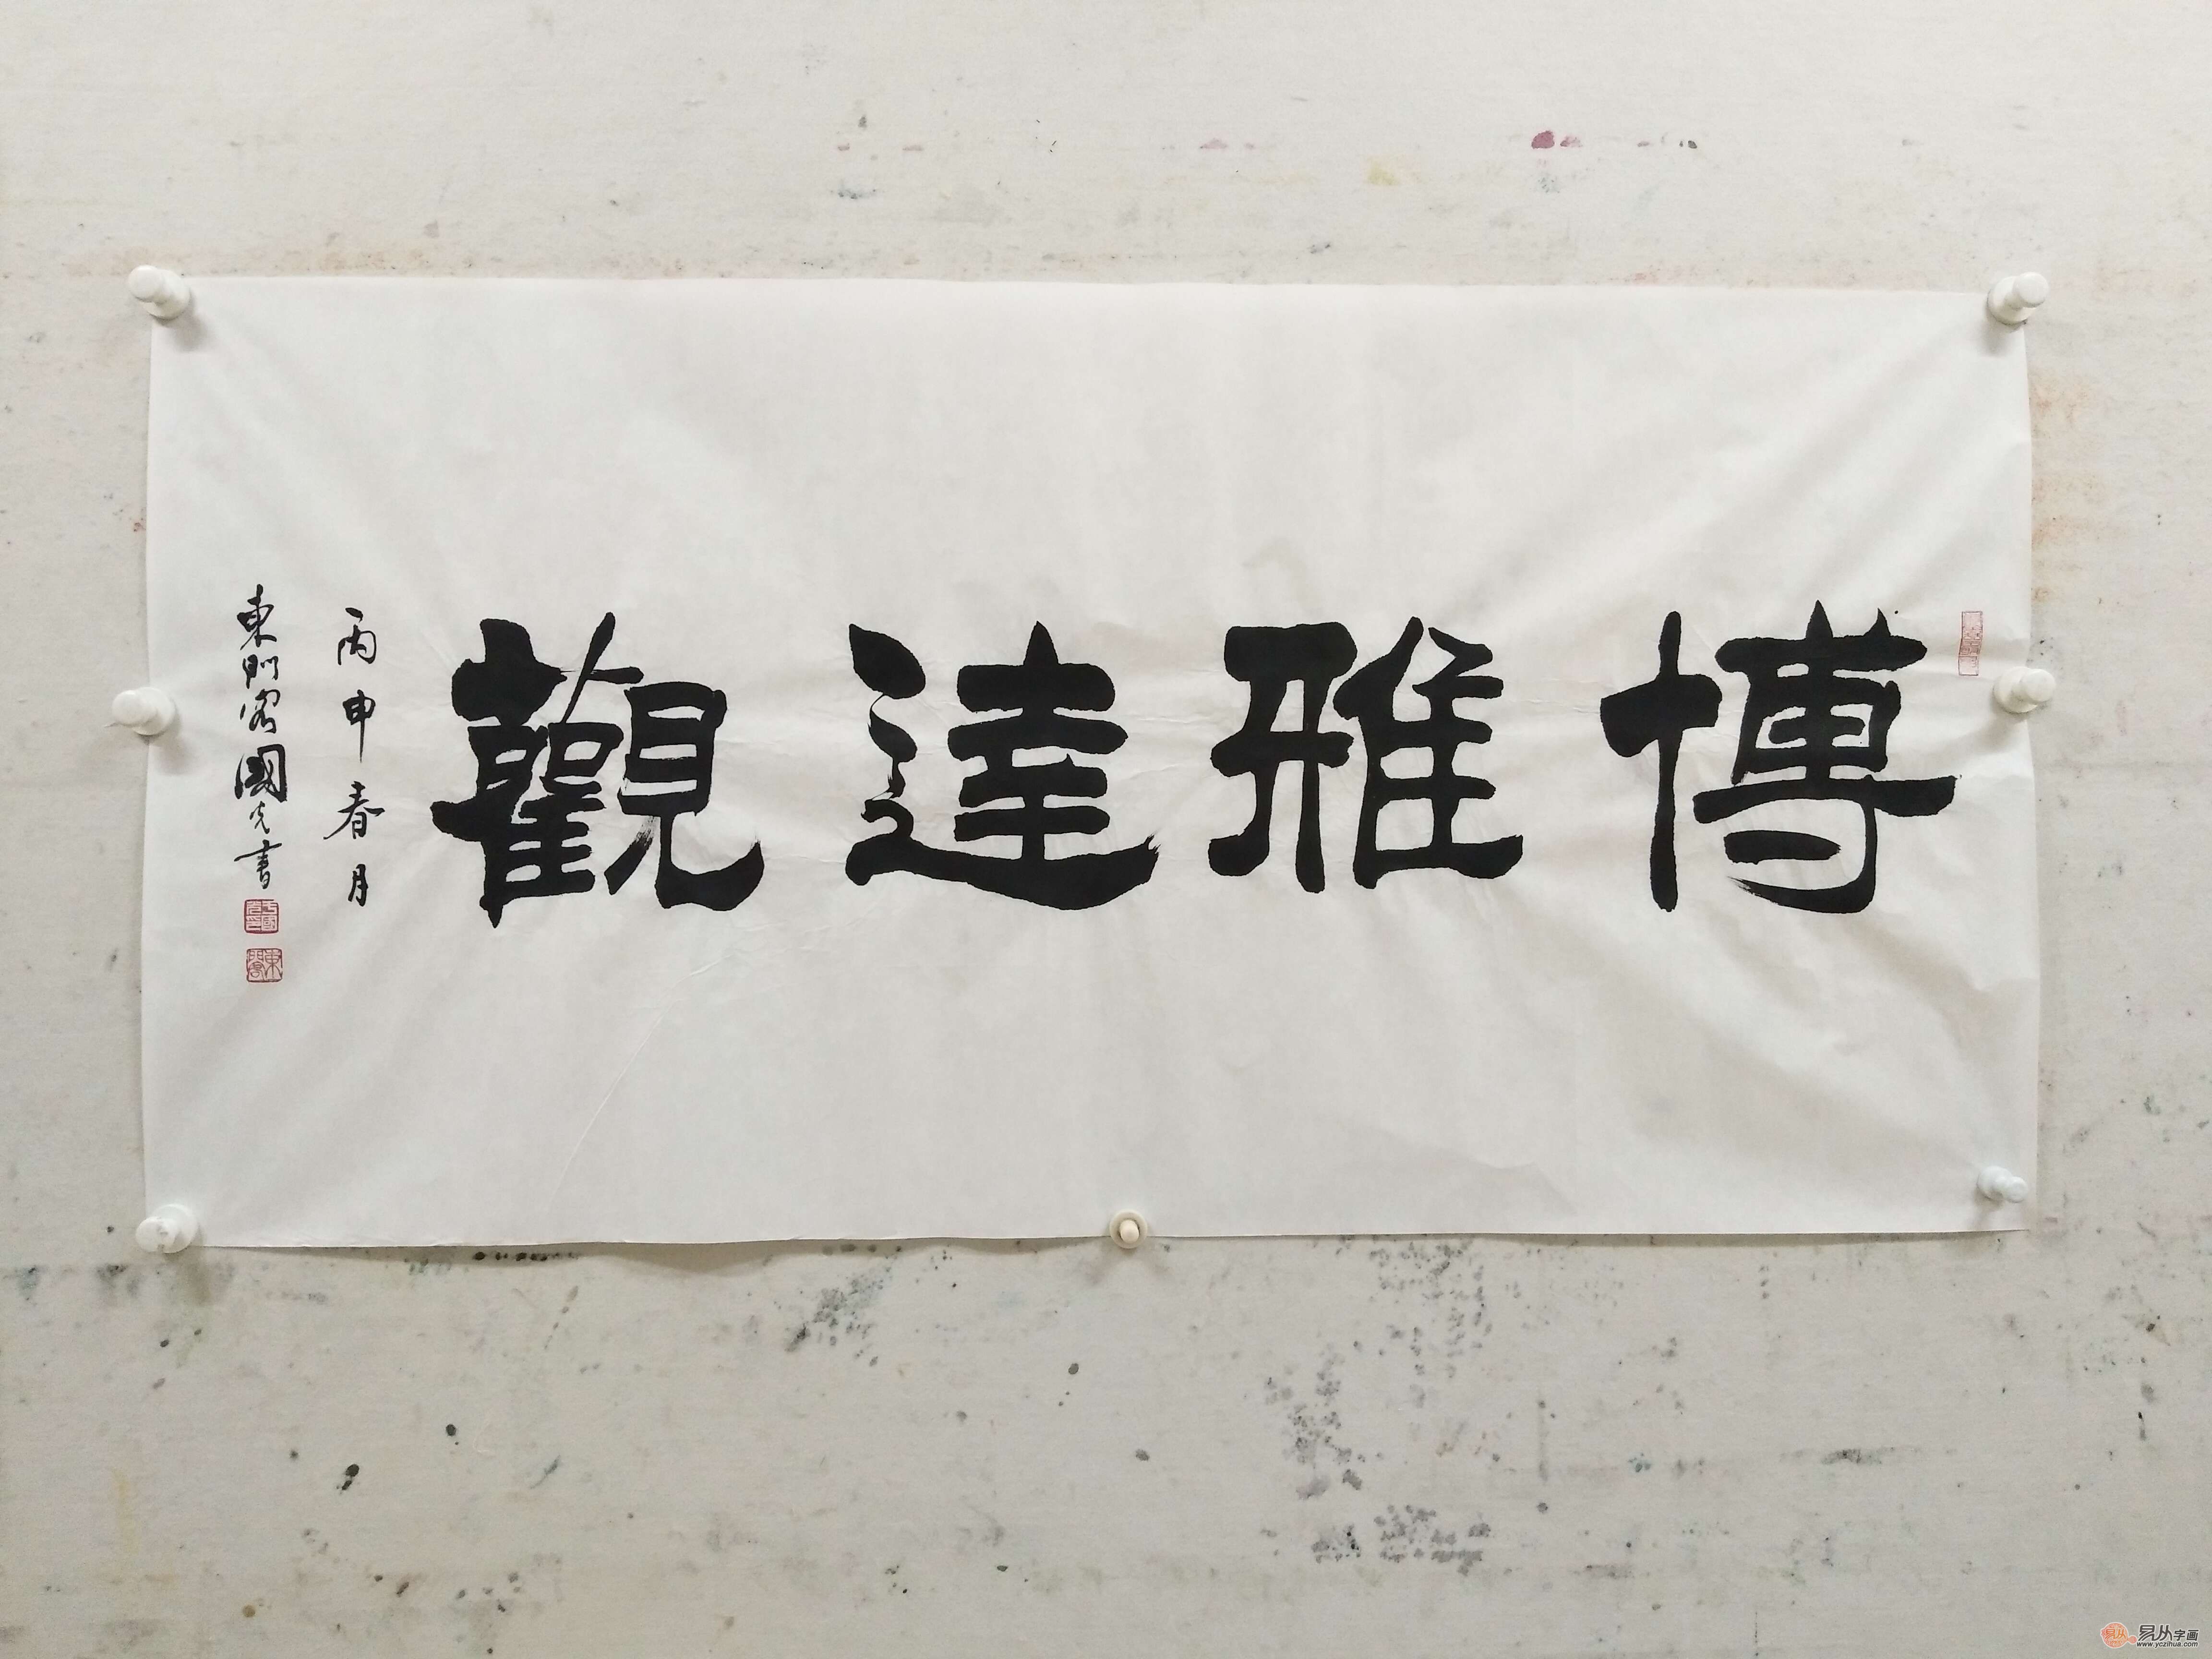 博雅達觀
丙申春月
東門客國光書
易从字画
www.yczihua.com